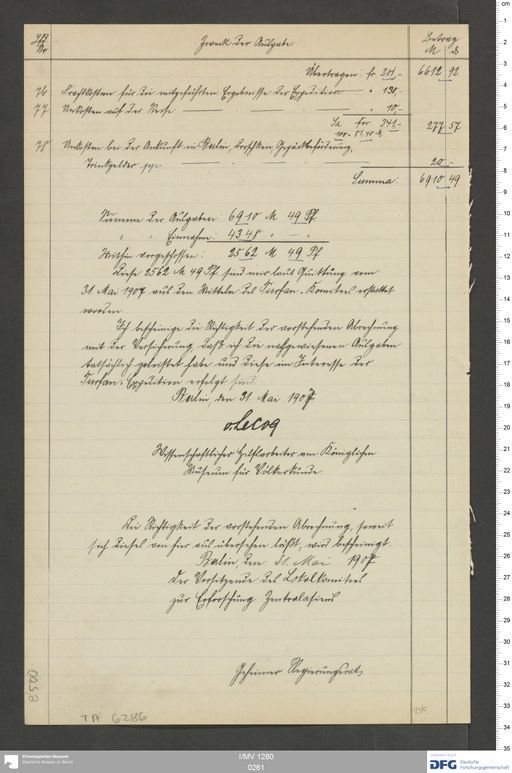 Lfd. Nr.
Zweck der Ausgabe
Betrag
M ₰
Übertragen: fr 201,– 6612 92
76 Frachtkosten für die mitgeführten Ergebnisse der Expedition " 130,–
77 Unkosten auf der Reise " 10,–
Sa fr. 341,–
277 57
78 Unkosten bei der Ankunft in Berlin, Droschken, Gepäckbeförderung,
Trinkgelder pp 20 –
Summa: 6910 49
Summe der Ausgaben: 6910 M 49 Pf
" " Einnahmen: 4348 " – "
Mithin vorgeschossen: 2562 M 49 Pf
Diese 2562 M 49 Pf. sind mir laut Quittung vom
31. Mai 1907 aus den Mitteln des Turfan-Komitees erstattet
worden
Ich bescheinige die Richtigkeit der vorstehenden Abrechnung
mit der Versicherung, daß ich die nachgewiesenen Ausgaben
tatsächlich geleistet habe und diese im Interesse der
Turfan-Expedition erfolgt sind
Berlin, den 31 Mai 1907
v. Lecoq
Wissenschaftlicher Hilfsarbeiter am Königlichen
Museum für Völkerkunde.
Die Richtigkeit der vorstehenden Abrechnung, soweit
sich dieses von hier aus übersehen läßt, wird bescheinigt.
Berlin, den 31. Mai 1907
Der Vorsitzende des Lokalkomitees
zur Erforschung Zentralasiens
Geheimer Regierungsrat
8500
TA 6286
Ethnologisches Museum
Staatliche Museen zu Berlin
I/MV 1280
0261
DFG Deutsche
Forschungsgemeinschaft